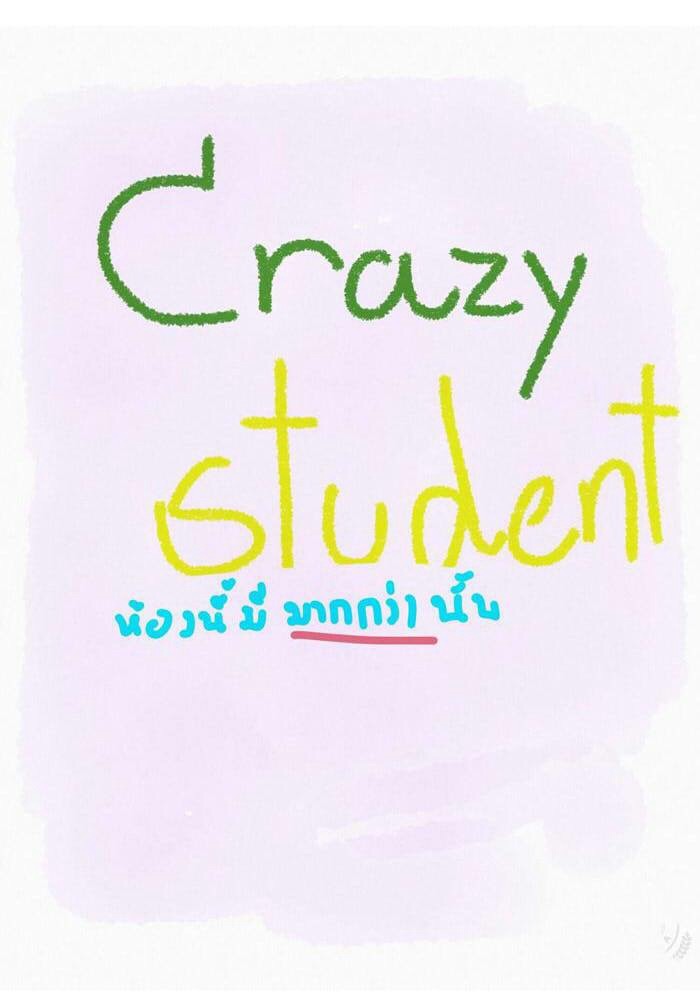 Crazy
student
ห้องนี้มี มากกว่า นั้น